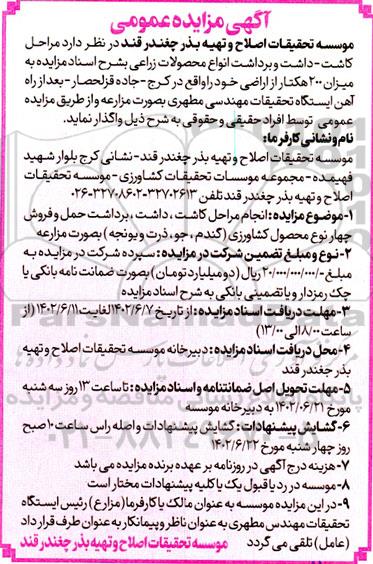 آگهی مزایده عمومی
موسسه تحقیقات اصلاح و تهیه بذر چغندر قند در نظر دارد مراحل
کاشت - داشت و برداشت انواع محصولات زراعی بشرح اسناد مزایده به
میزان ۲۰۰ هکتار از اراضی خود را واقع در کرج - جاده قزلحصار - بعد از راه
آهن ایستگاه تحقیقات مهندسی مطهری بصورت مزارعه و از طریق مزایده
عمومی توسط افراد حقیقی و حقوقی به شرح ذیل واگذار نماید.
نام و نشانی کارفرما:
موسسه تحقیقات اصلاح و تهیه بذر چغندر قند - نشانی کرج بلوار شهید
فهمیده - مجموعه موسسات تحقیقات کشاورزی - موسسه تحقیقات
اصلاح و تهیه بذر چغندر قند تلفن ۳۲۷۰۲۶۱۳-۳۲۷۰۸۶۰۲-۰۲۶
۱- موضوع مزایده: انجام مراحل کاشت ، داشت ، برداشت حمل و فروش
چهار نوع محصول کشاورزی (گندم ، جو ، ذرت و یونجه) بصورت مزارعه
۲- نوع و مبلغ تضمین شرکت در مزایده: سپرده شرکت در مزایده به
مبلغ ۲۰/۰۰۰/۰۰۰/۰۰۰ ریال (دو میلیارد تومان) بصورت ضمانت نامه بانکی یا
چک رمزدار و یا تضمینی بانکی به شرح اسناد مزایده
۳- مهلت دریافت اسناد مزایده: از تاریخ ۱۴۰۲/۶/۷ لغایت ۱۴۰۲/۶/۱۱ (از
ساعت ۸/۰۰ الی ۱۳/۰۰)
۴- محل دریافت اسناد مزایده: دبیرخانه موسسه تحقیقات اصلاح و تهیه
بذر چغندر قند
۵- مهلت تحویل اصل ضمانتنامه و اسناد مزایده: تا ساعت ۱۳ روز سه شنبه
مورخ ۱۴۰۲/۰۶/۲۱ به دبیرخانه موسسه
۶- گشایش پیشنهادات: گشایش پیشنهادات واصله راس ساعت ۱۰ صبح
روز چهار شنبه مورخ ۱۴۰۲/۶/۲۲
۷- هزینه درج آگهی در روزنامه بر عهده برنده مزایده می باشد
۸- موسسه در رد یا قبول یک یا کلیه پیشنهادات مختار است
۹- در این مزایده موسسه به عنوان مالک یا کارفرما (مزارع) رئیس ایستگاه
تحقیقات مهندس مطهری به عنوان ناظر و پیمانکار به عنوان طرف قرار داد
(عامل) تلقی می گردد
موسسه تحقیقات اصلاح و تهیه بذر چغندر قند